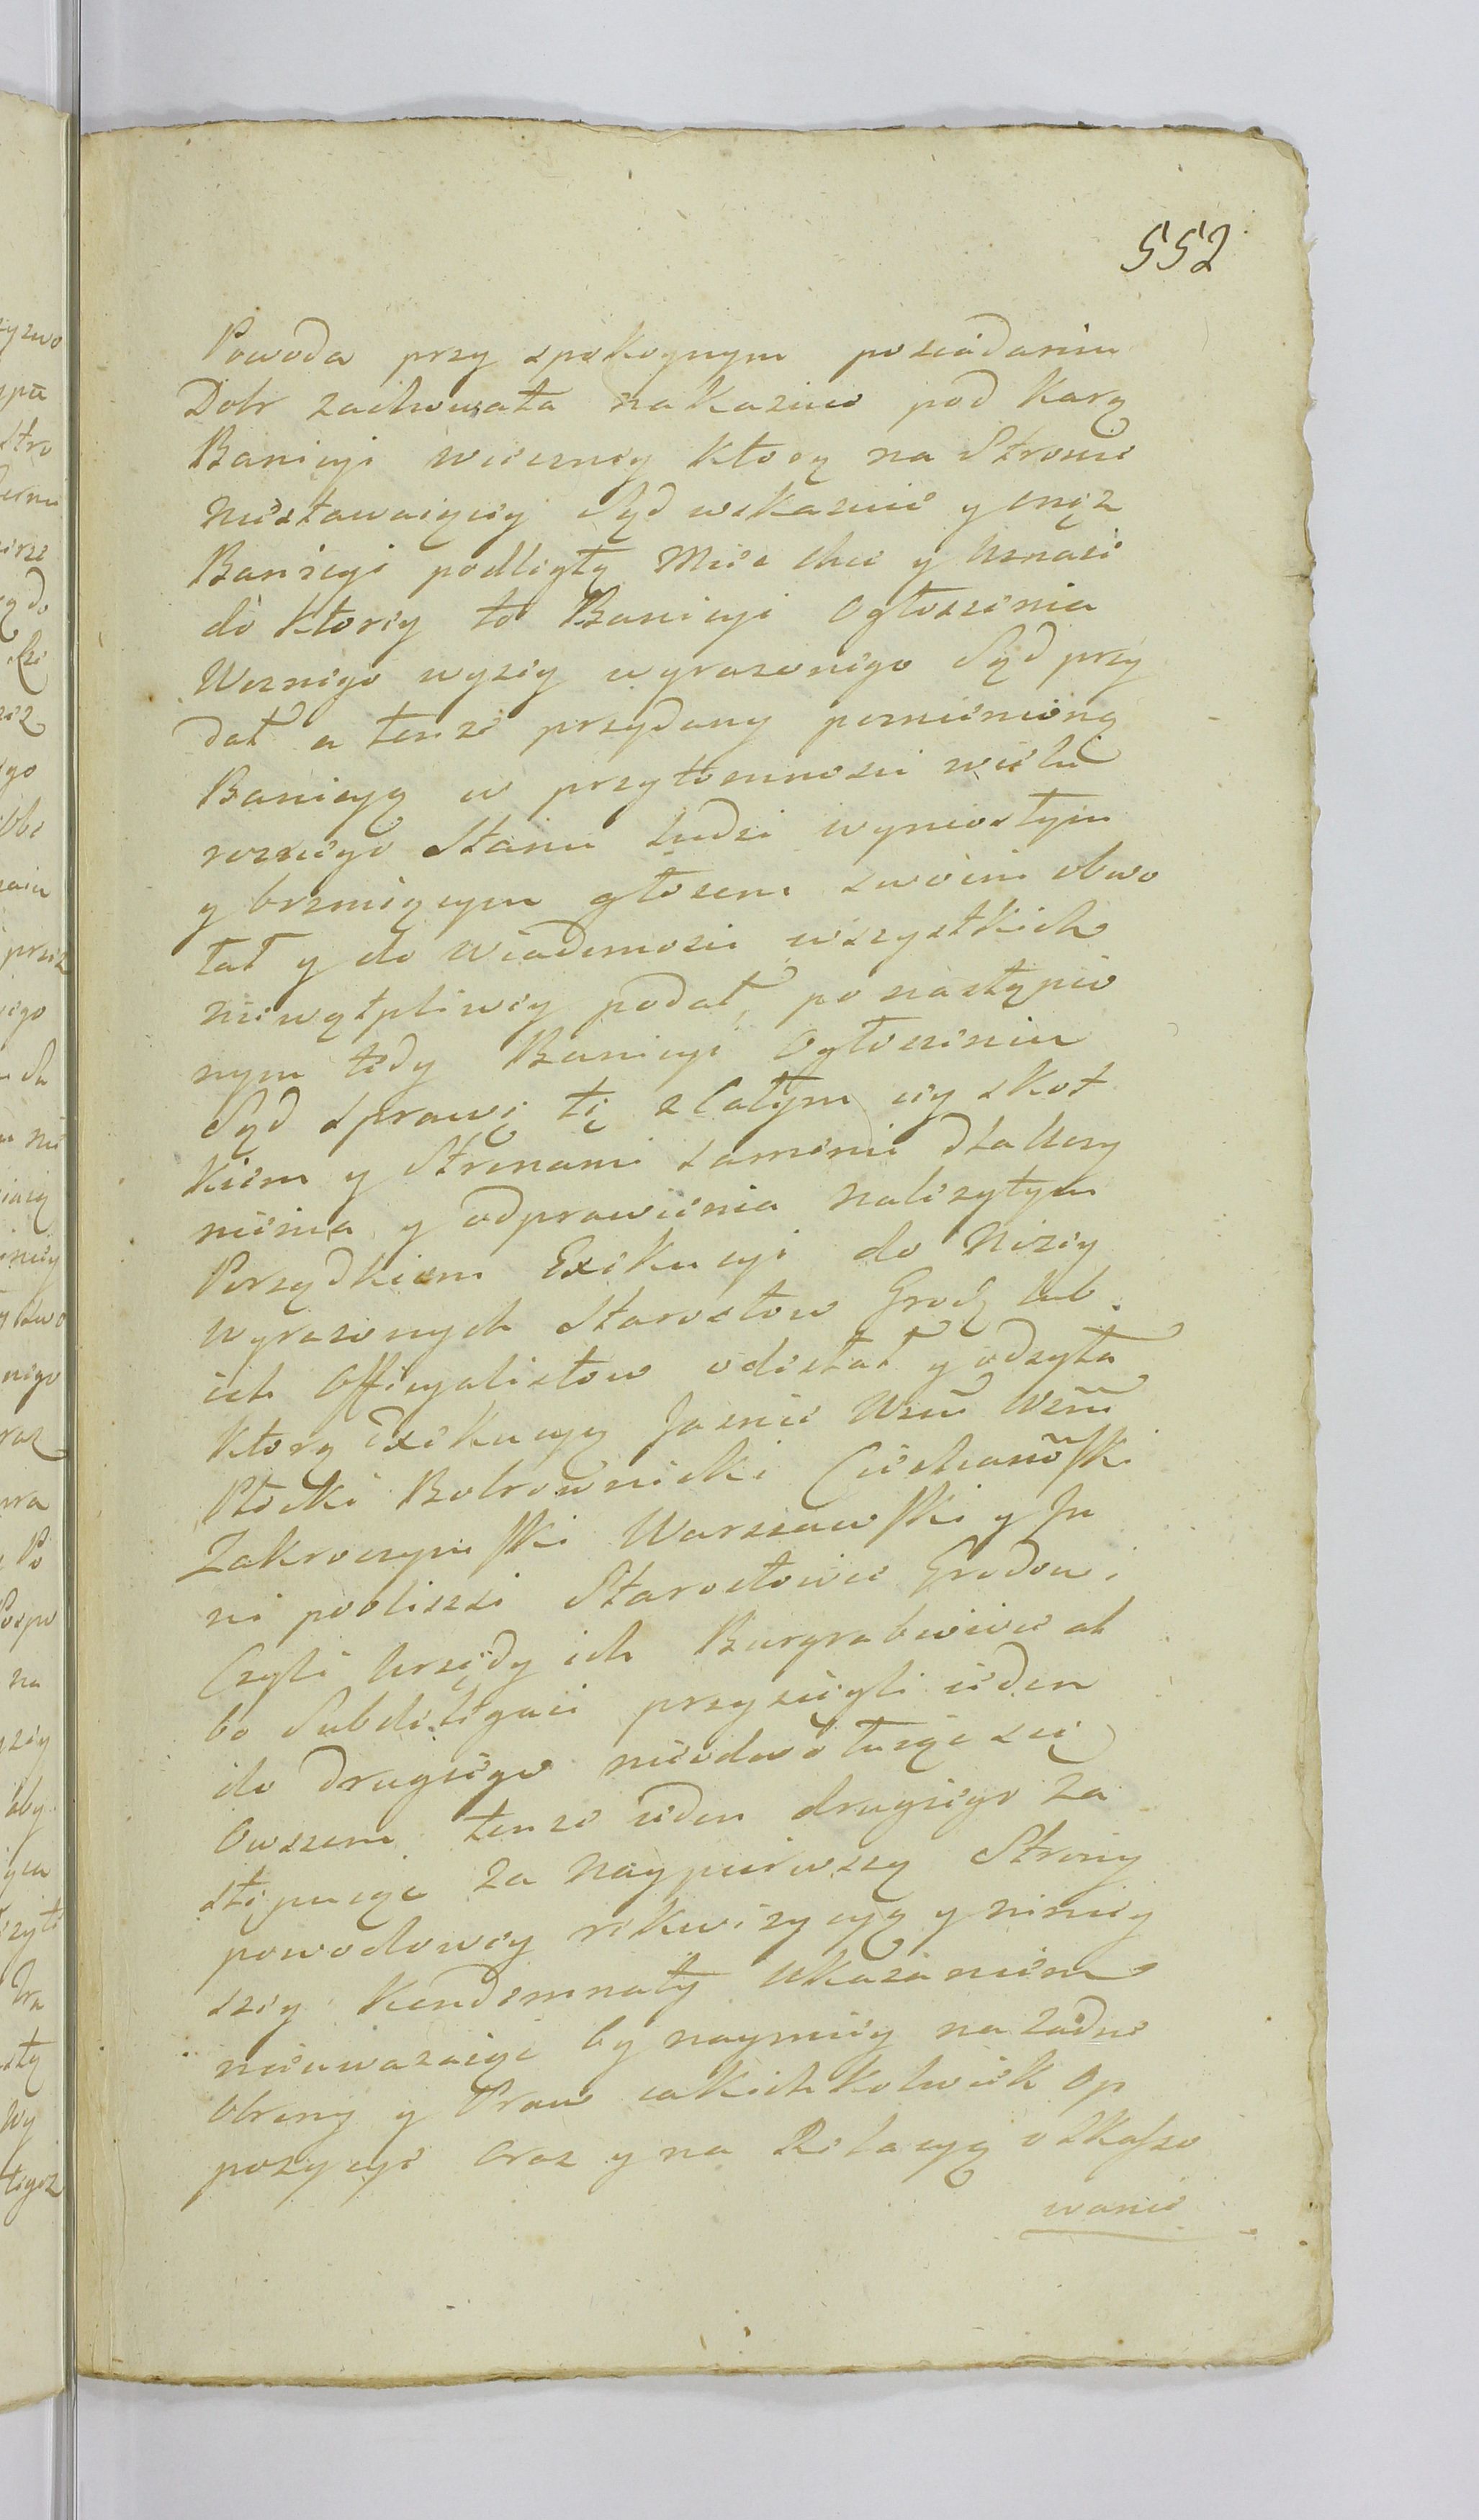 552
Powoda przy spokoynym posiadaniu
Dobr zachowała nakazuie pod karą
Banicyi wieczney ktorą na Stronie
niestawaiącey Sąd wskazuie y onęż
Banicyi podległą Mieć chce y Uznaie
do ktorey to Banicyi Ogłoszenia
Woznego wyzey wyrazonego Sąd przy
dał a tenze przydany pomienioną
Banicyą w przytomnosci wielu
roznego Stanu Ludzi wyniosłym
y brzmiącym głosem swoim obwo
łał y do wiadomosci wszystkich
niewątpliwey podał, po nastąpio
nym tedy Banicyi Ogłoszeniu
Sąd Sprawę tę z Całym iey skut
kiem y Stronami samemi dla Uczy
nienia y odprawienia nalezytym
Porządkiem Exekucyi do Nizey
wyrazonych Starostow Grodz lub
ich Officyalistow odesłał y odsyła
ktorą Exekucyą Jasnie Wnī Wnī
Płocki Bobrownicki Ciechanowski
Zakroczymski Warszawski y In
ni pobliszsi Starostowie Grodowi
Czyli Urzędy ich Burgrabiowie al
bo Subdelegaci przysięgli ieden
do drugiego nieodwołuiąc się
Owszem tenze ieden drugiego za
stępuiąc za naypierwszą Strony
powodowey rekwizycyą y niniey
szey Kondemnaty Ukazaniem
nieuwazaiąc bynaymniey na zadne
Obrony y Praw iakichkolwiek Op
pozycye oraz y na Relacyą o Skasso
wanie